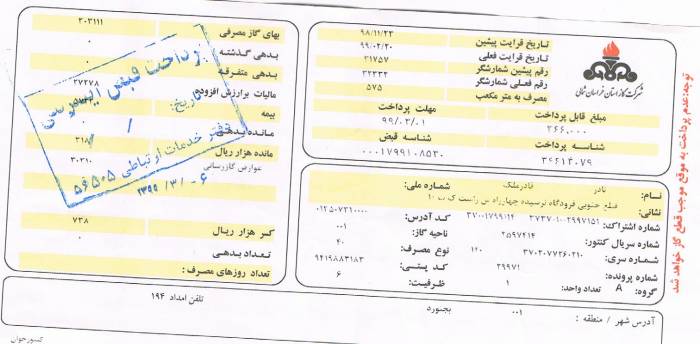 شرکت گاز استان خراسان شمالی
تاریخ قرائت پیشین ۹۸/۱۱/۲۳
تاریخ قرائت فعلی ۹۹/۰۲/۲۰
رقم پیشین شمارشگر ۳۱۷۵۷
رقم فعلی شمارشگر ۳۲۳۳۲
مصرف به متر مکعب ۵۷۵
مبلغ قابل پرداخت مهلت پرداخت
۳۶۶,۰۰۰ ۹۹/۰۳/۰۱
شناسه پرداخت شناسه قبض
۳۶۶۱۴۰۷۹ ۰۰۰۱۷۹۹۱۰۸۵۳۰
نام: نادر قادرملک شماره ملی:
نشانی: ضلع جنوبی فرودگاه نرسیده چهارراه س راست ک ب ۱۰
شماره اشتراک: ۳۷۳۷۰۱۰۰۲۹۹۷۱۵۱ ۳۷۰۰۱۷۹۹۱۱۴ کد آدرس: ۰۱۲۵۰۷۳۱۰۰۰۰
شماره سریال کنتور: ۲۵۹۷۴۱۴ ناحیه گاز: ۰۰۱
شماره سری: ۳۷۰۲۰۷۷۲۶۰۲۱۰ ۱۲۰ نوع مصرف: ۴۰
شماره پرونده: ۳۹۹۷۱ کد پستی: ۹۴۱۹۸۸۳۱۸۳
گروه: A تعداد واحد: ۱ ظرفیت: ۶
آدرس شهر / منطقه : ۰۰۱ بجنورد
تلفن امداد ۱۹۴
بهای گاز مصرفی ۳۰۳۱۱۱
بدهی گذشته ۰
بدهی متفرقه ۰
مالیات برارزش افزوده ۲۷۲۷۸
بیمه
مانده بدهی
مانده هزار ریال ۳۱۸
عوارض گازرسانی ۳۰۳۱۰
کسر هزار ریال ۷۳۸
تعداد بدهی ۰
تعداد روزهای مصرف :
پرداخت قبض اینترنتی
تاریخ: / /
دفتر خدمات ارتباطی ۵۰۵ ق۵
۱۳۹۹ /۳/ -۶
توجه:عدم پرداخت به موقع موجب قطع گاز خواهد شد
کسورجوان